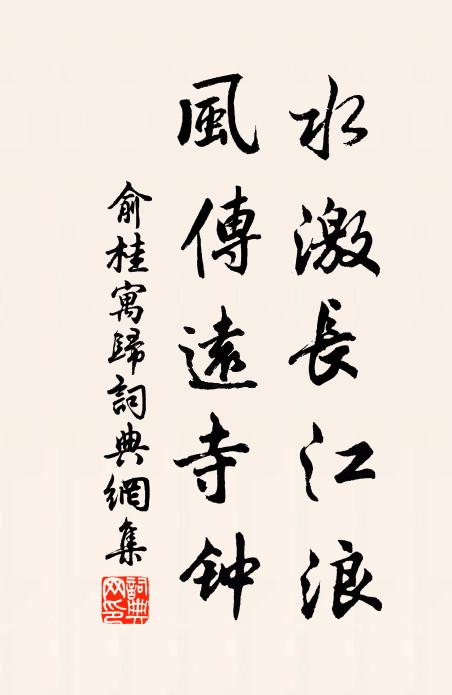 水激長江浪
風傳遠寺钟
俞桂寓歸詞典網集
詞典网印